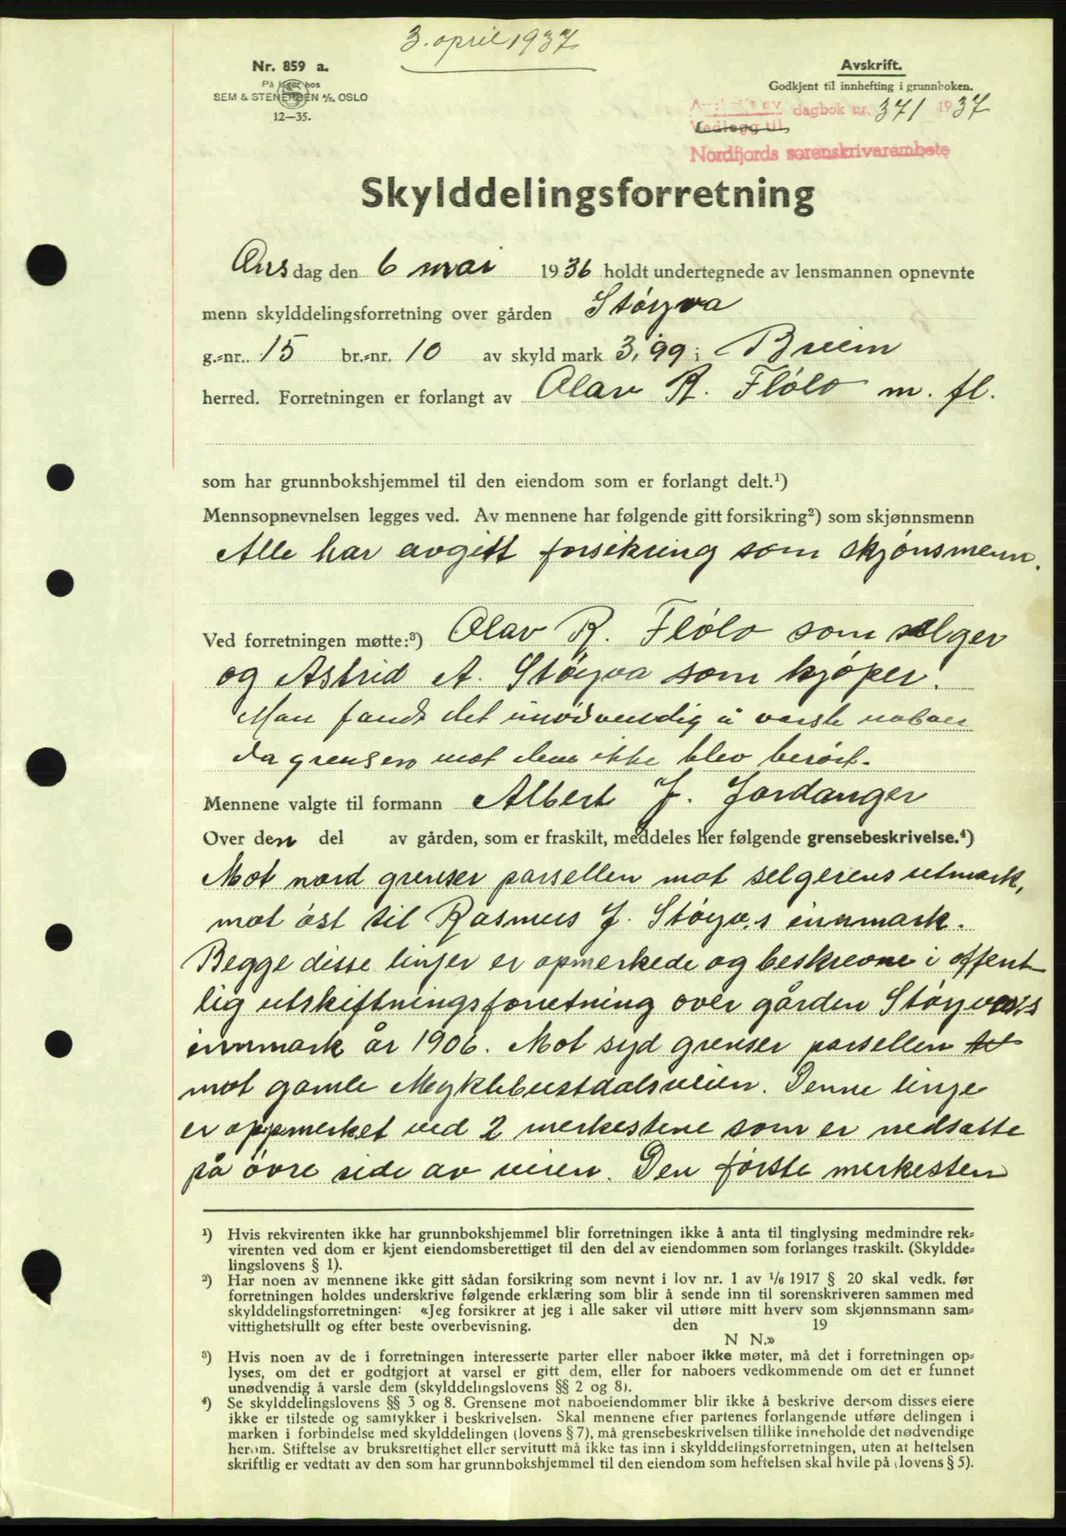 3. april 1937
Nr. 859 a.
På lager hos
SEM & STENERSEN A/S, OSLO
12—35.
Avskrift.
Godkjent til innhefting i grunnboken.
dagbok nr. 371 1937
Vedlegg til
Nordfjords sorenskrivarembete
Skylddelingsforretning
Onsdag den 6 mai 1936 holdt undertegnede av lensmannen opnevnte
menn skylddelingsforretning over gården Støyva
g.-nr. 15 br.-nr. 10 av skyld mark 3,99 i Breim
herred. Forretningen er forlangt av Olav R. Flólo m. fl.
som har grunnbokshjemmel til den eiendom som er forlangt delt.¹)
Mennsopnevnelsen legges ved. Av mennene har følgende gitt forsikring²) som skjønnsmenn
Alle har avgitt forsikring som skjónsmenn.
Ved forretningen møtte:³) Olav R. Flólo som selger
og Astrid A. Støyva som kjóper.
Man fandt det unødvendig å varsle naboer
da grensen mot dem ikke blev berórt.
Mennene valgte til formann Albert J. Jordanger
Over den del av gården, som er fraskilt, meddeles her følgende grensebeskrivelse.⁴)
Mot nord grenser parsellen mot selgerens utmark,
mot óst til Rasmus J. Stóyva,s innmark.
Begge disse linjer er opmerkede og beskrevne i offent-
lig utskiftningsforretning over gården Stóyvas
innmark år 1906. Mot syd grenser parsellen
mot gamle Myklebustdalsveien. Denne linje
er oppmerket ved 2 merkestene som er nedsatte
på óvre side av veien. Den fórste merkesten
¹) Hvis rekvirenten ikke har grunnbokshjemmel blir forretningen ikke å anta til tinglysing medmindre rek-
virenten ved dom er kjent eiendomsberettiget til den del av eiendommen som forlanges fraskilt. (Skyldde-
lingslovens § 1).
²) Har noen av mennene ikke gitt sådan forsikring som nevnt i lov nr. 1 av 1/6 1917 § 20 skal vedk. før
forretningen holdes underskrive følgende erklæring som blir å sende inn til sorenskriveren sammen med
skylddelingsforretningen: «Jeg forsikrer at jeg i alle saker vil utføre mitt hverv som skjønnsmann sam-
vittighetsfullt og efter beste overbevisning. den 19
N N.»
³) Hvis noen av de i forretningen interesserte parter eller naboer ikke møter, må det i forretningen op-
lyses, om det er godtgjort at varsel er gitt dem, eller for naboers vedkommende om det er funnet
unødvendig å varsle dem (skylddelingslovens §§ 2 og 8).
⁴) Se skylddelingslovens §§ 3 og 8. Grensene mot naboeiendommer blir ikke å beskrive dersom disses eiere
ikke er tilstede og samtykker i beskrivelsen. Skal mennene efter partenes forlangende utføre delingen i
marken i forbindelse med skylddelingen (lovens § 7), må grensebeskrivelsen tillike inneholde det nødvendige
herom. Stiftelse av bruksrettighet eller servitutt må ikke tas inn i skylddelingsforretningen, uten at heftelsen
skriftlig er vedtatt av den som har grunnbokshjemmel til den eiendom som heftelsen skal hvile på (lovens § 5).